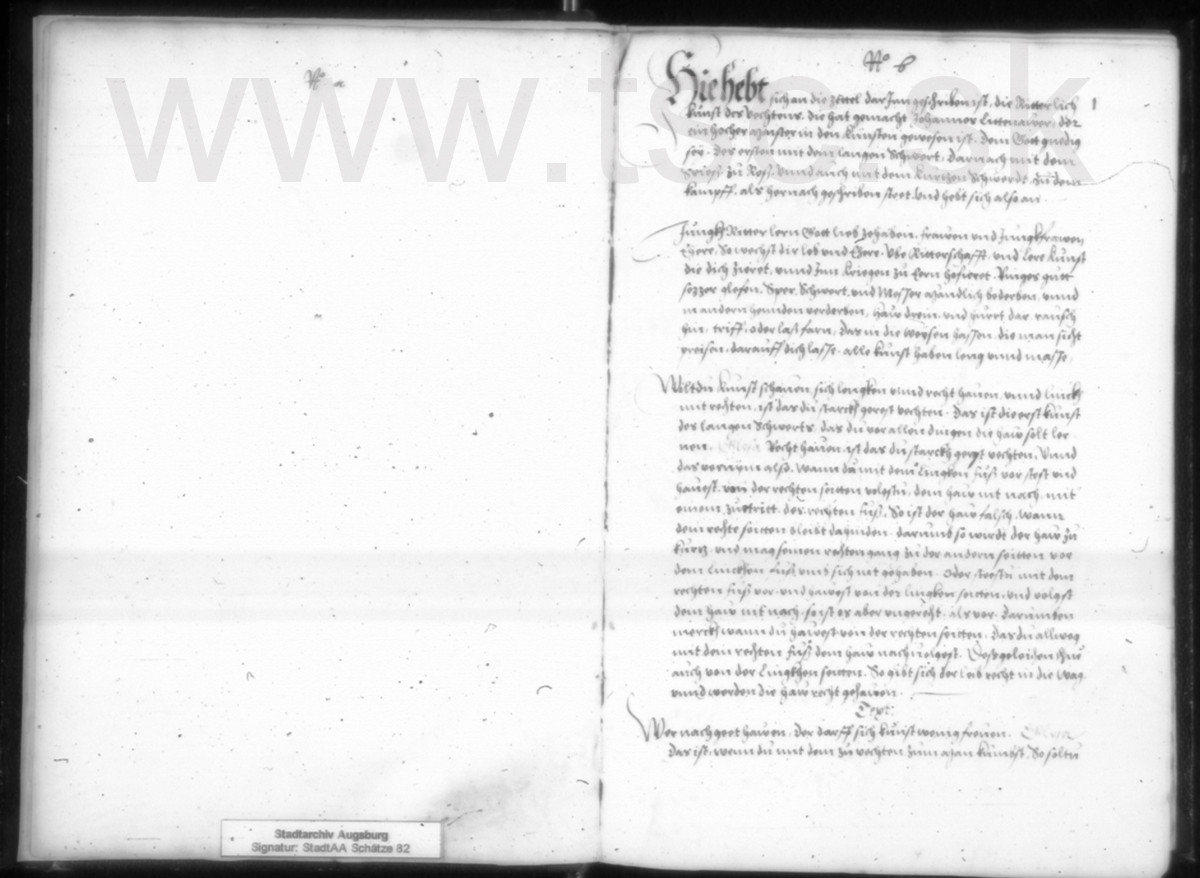 No a
No b
1
Hie hebt sich an die zettel dar Inn geschriben ist, die Ritterlich
kunst des vechtens, die hat gemacht Johannes Liechtenawer, der
ein hocher maister in den kunsten gewesen ist. Dem Gott gnedig
sey. Des ersten mit dem langen Schwert, Darnach mit dem
Spiess zu Ross, vnnd auch mit dem kurtzen Schwerdt, zu dem
kampff, als hernach geschriben steet, vnd hebt sich also an.
Jungkh Ritter lern Gott lieb zehaben, frawen vnd Jungkfrawen
Eere, So wechst dir lob vnd Eere. Vbe Ritterschafft, vnd lere kunst
die dich zieret, vnnd Inn kriegen zu Eern hofieret. Ringes gutt
fesser glefen, Sper, Schwert, vnd Messer mandlich bederben, vnnd
in andern hennden verderben, Haw drein, vnd hurrt dar, rausch
hin, triff, oder lass farn, Das in die weysen hassen, die man sicht
preisen, darauff dich lasse, alle kunst haben leng vnnd masse.
Wiltdu kunst schawen, sich lingken vnnd recht hawen, vnnd linckh
mit rechten, ist das du starckh gerest vechten. Das ist die erst kunst
des langen Schwerts, das du vor allen dingen die haw solt ler
nen. Glosa Recht hawen, ist das du starckh gerest vechten, Vnnd
das vernym also, Wann du mit dem Lingken fuss vor stest vnd
hawest, von der rechten seitten volgstu, dem haw nit nach, mit
einem zutritt, des rechten fuss, So ist der haw falsch, Wann
dein rechte seitten bleibt dahinden, darumb so wirdt der haw zu
kurtz, vnd mag seinen rechten gang zu der andern seitten vor
dem linckhen fuss vmb sich nit gehaben. Oder steestu mit dem
rechten fuss vor, vnd hawest von der lingken seitten, vnd volgst
dem haw nit nach, so ist er aber vngerecht, als vor. Darumben
merckh wann du hawest von der rechten seitten, Das du allweg
mit dem rechten fuss dem haw nachvolgest. Dessgeleichen thue
auch von der Lingkhen seitten, So gibt sich der leib recht in die Wag,
vnnd werden die haw recht gehawen.
Text:
Wer nach geet hawen, Der darff sich kunst wenig frewen. Glosa
Das ist, wenn du mit dem zu vechten zum man kumbst, So soltu
Stadtarchiv Augsburg
Signatur: StadtAA Schätze 82
www.tsc.sk